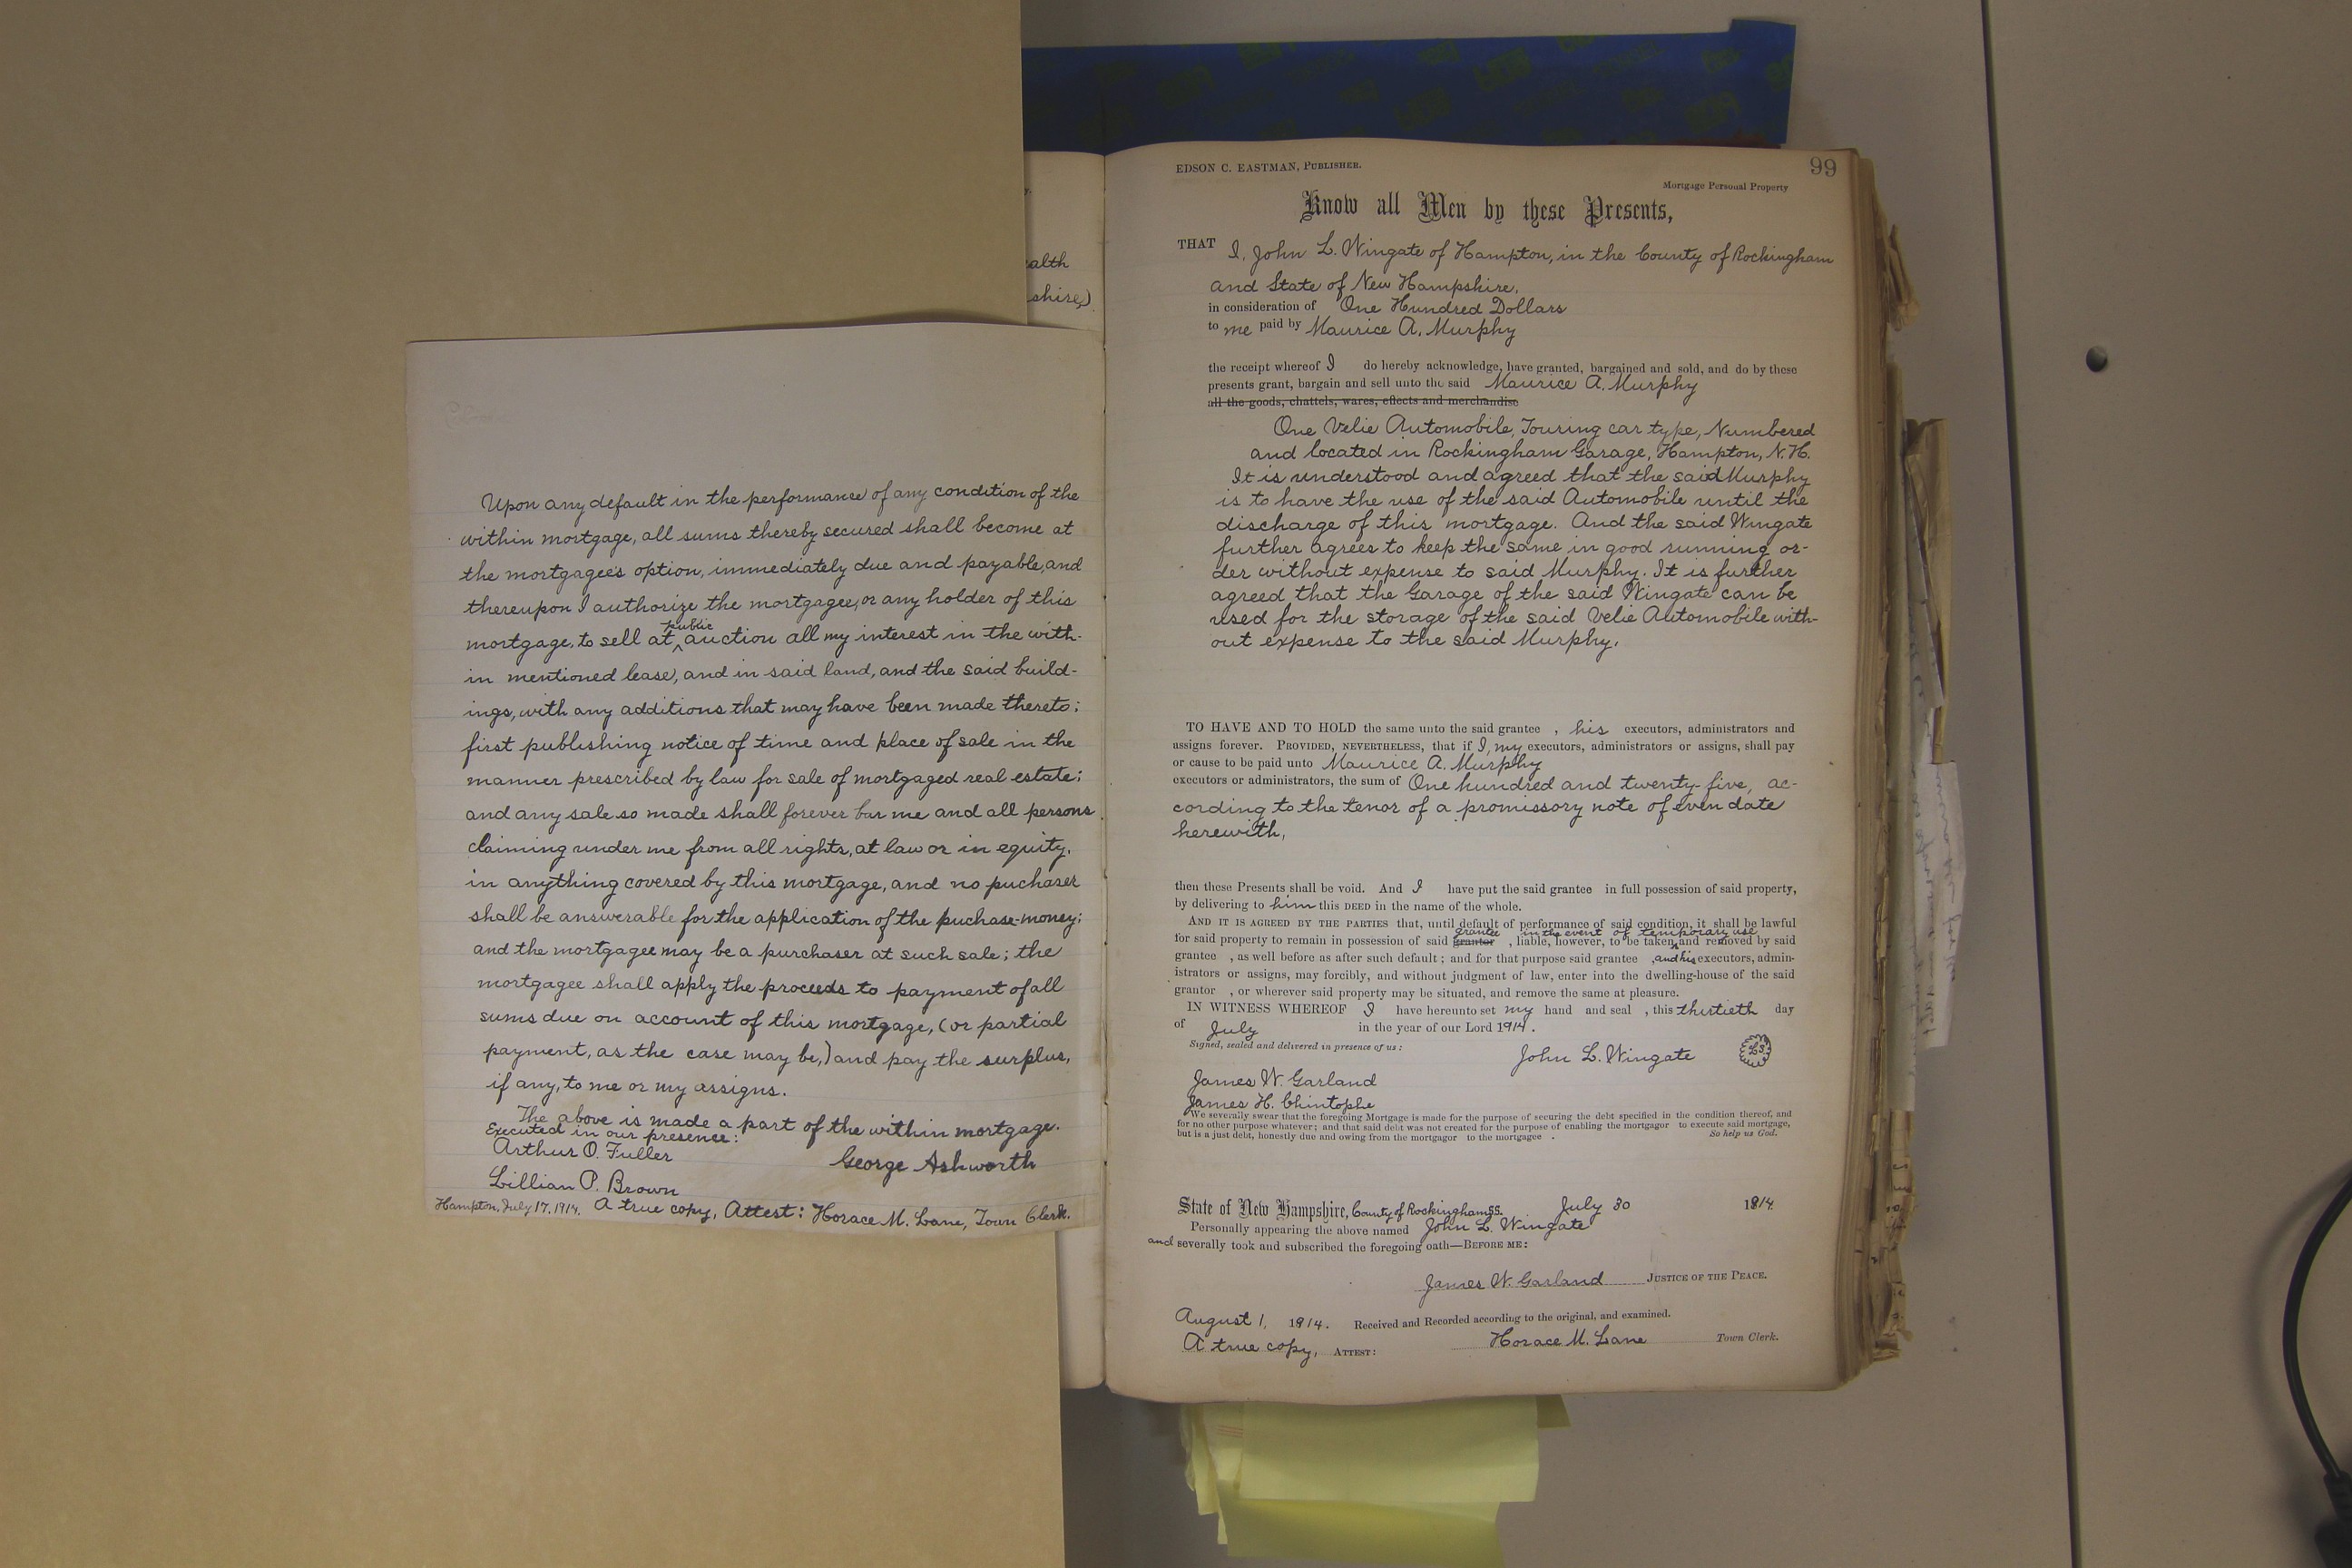 alth
shire)
Upon any default in the performance of any condition of the
within mortgage, all sums thereby secured shall become at
the mortgagee's option, immediately due and payable, and
thereupon I authorize the mortgagee, or any holder of this
public
mortgage, to sell at ^ auction all my interest in the with-
in mentioned lease, and in said land, and the said build-
ings, with any additions that may have been made thereto;
first publishing notice of time and place of sale in the
manner prescribed by law for sale of mortgaged real estate;
and any sale so made shall forever bar me and all persons
claiming under me from all rights, at law or in equity,
in anything covered by this mortgage, and no puchaser
shall be answerable for the application of the puchase-money;
and the mortgagee may be a purchaser at such sale; the
mortgagee shall apply the proceeds to payment of all
sums due on account of this mortgage, (or partial
payment, as the case may be,) and pay the surplus,
if any, to me or my assigns.
The above is made a part of the within mortgage.
Executed in our presence:
Arthur O. Fuller
George Ashworth
Lillian P. Brown
Hampton, July 17, 1914. A true copy, Attest: Horace M. Lane, Town Clerk.
EDSON C. EASTMAN, PUBLISHER.
99
Mortgage Personal Property
Know all Men by these Presents,
THAT I, John L. Wingate of Hampton, in the County of Rockingham
and State of New Hampshire,
in consideration of One Hundred Dollars
to me paid by Maurice A. Murphy
the receipt whereof I do hereby acknowledge, have granted, bargained and sold, and do by these
presents grant, bargain and sell unto the said Maurice A. Murphy
all the goods, chattels, wares, effects and merchandise
One Velie Automobile, Touring car type, Numbered
and located in Rockingham Garage, Hampton, N.H.
It is understood and agreed that the said Murphy
is to have the use of the said Automobile until the
discharge of this mortgage. And the said Wingate
further agrees to keep the same in good running or-
der without expense to said Murphy. It is further
agreed that the Garage of the said Wingate can be
used for the storage of the said Velie Automobile with-
out expense to the said Murphy.
TO HAVE AND TO HOLD the same unto the said grantee , his executors, administrators and
assigns forever. PROVIDED, NEVERTHELESS, that if I, my executors, administrators or assigns, shall pay
or cause to be paid unto Maurice A. Murphy
executors or administrators, the sum of One hundred and twenty-five, ac-
cording to the tenor of a promissory note of even date
herewith,
then these Presents shall be void. And I have put the said grantee in full possession of said property,
by delivering to him this DEED in the name of the whole.
AND IT IS AGREED BY THE PARTIES that, until default of performance of said condition, it shall be lawful
grantee in the event of temporary use
for said property to remain in possession of said grantor , liable, however, to be taken ^ and removed by said
grantee , as well before as after such default; and for that purpose said grantee , and his executors, admin-
istrators or assigns, may forcibly, and without judgment of law, enter into the dwelling-house of the said
grantor , or wherever said property may be situated, and remove the same at pleasure.
IN WITNESS WHEREOF I have hereunto set my hand and seal , this thirtieth day
of July in the year of our Lord 1914.
Signed, sealed and delivered in presence of us:
John L. Wingate L.S.
James W. Garland
James H. Chintophe
We severally swear that the foregoing Mortgage is made for the purpose of securing the debt specified in the condition thereof, and
for no other purpose whatever; and that said debt was not created for the purpose of enabling the mortgagor to execute said mortgage,
but is a just debt, honestly due and owing from the mortgagor to the mortgagee . So help us God.
State of New Hampshire, County of Rockingham SS. July 30 1914.
Personally appearing the above named John L. Wingate
and severally took and subscribed the foregoing oath—BEFORE ME:
James W. Garland JUSTICE OF THE PEACE.
August 1, 1914. Received and Recorded according to the original, and examined.
A true copy, ATTEST: Horace M. Lane Town Clerk.